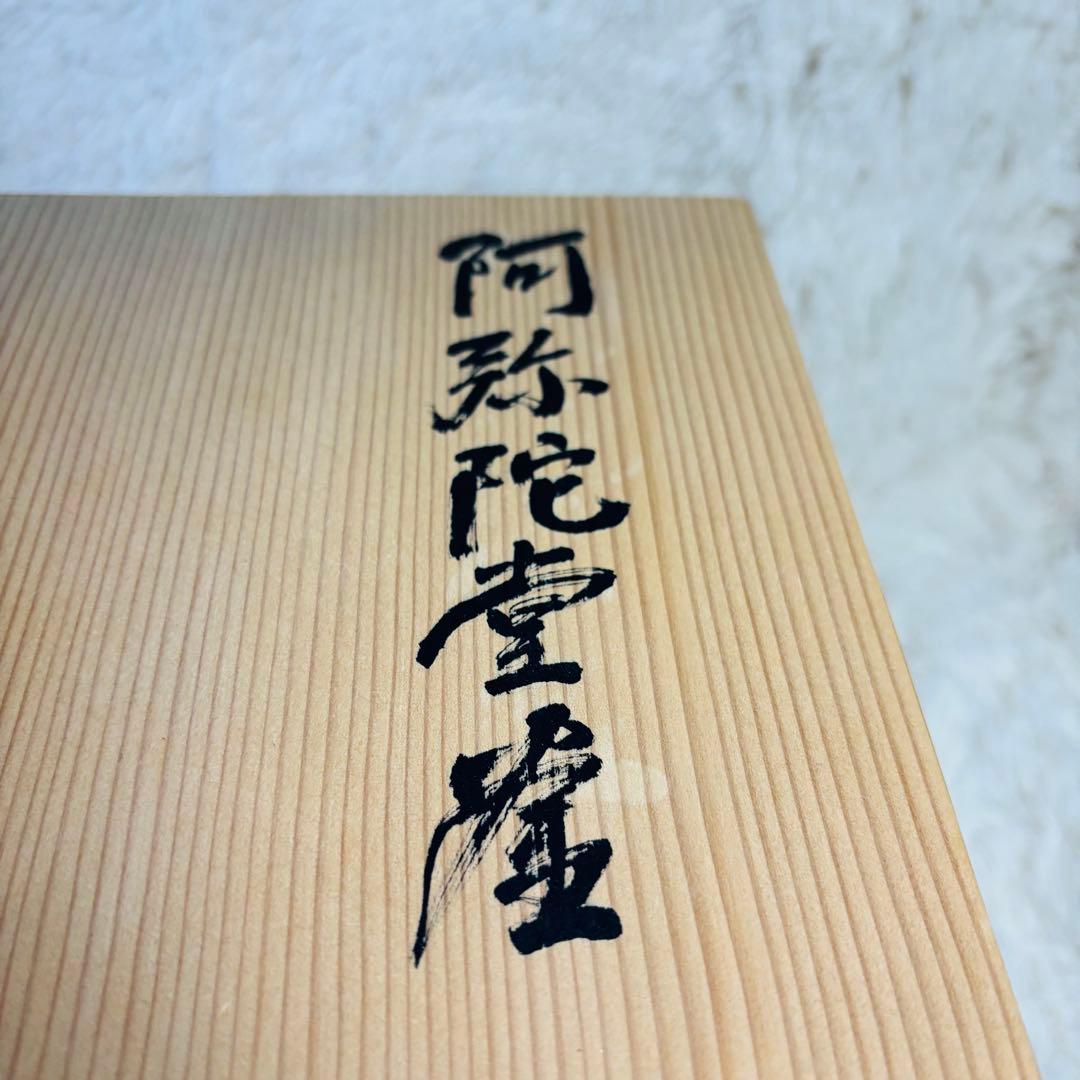 阿弥陀堂釜